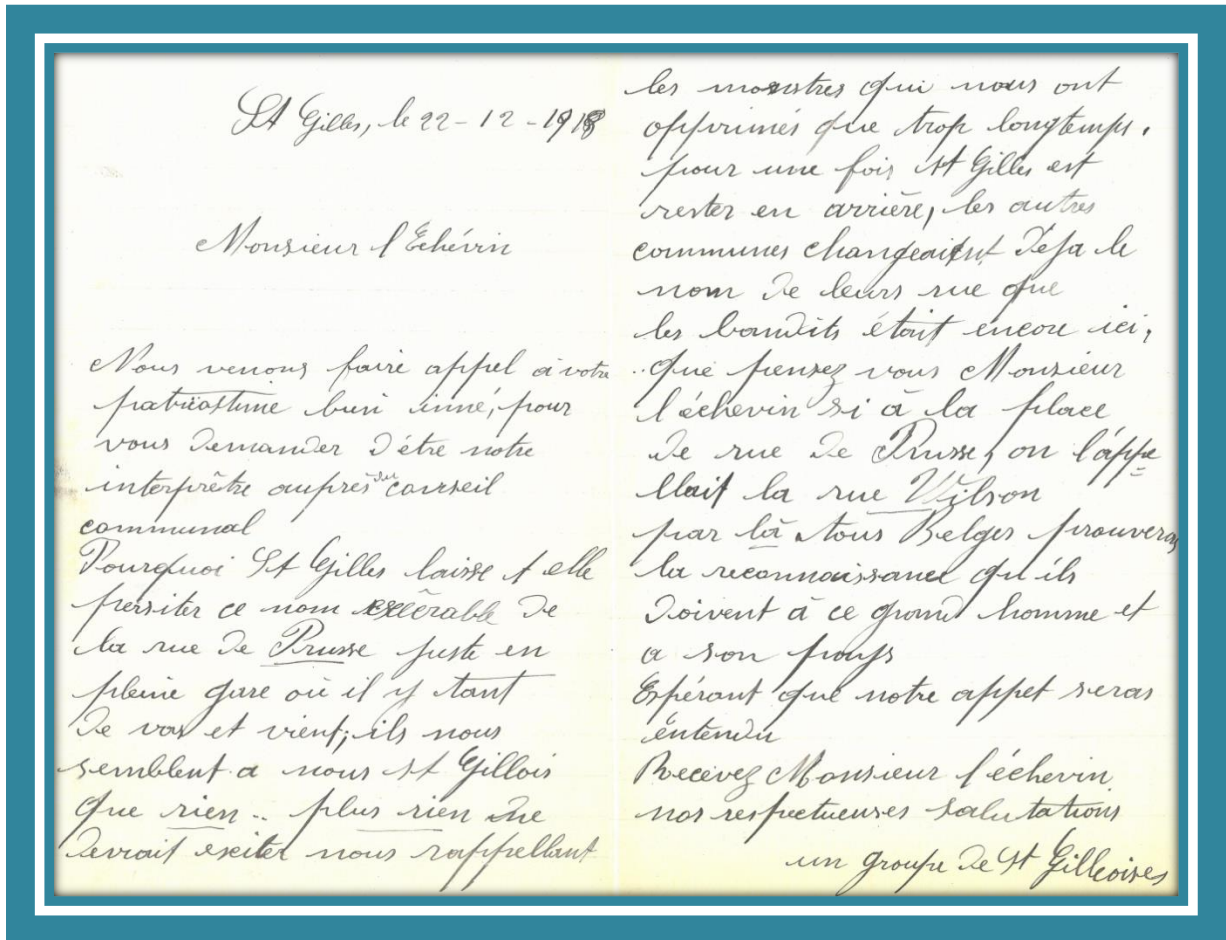 St Gilles, le 22-12-1918
Monsieur l'Echévin
Nous venons faire appel a votre
patriotisme bien inné, pour
vous demander d'être notre
interprêtre auprès du conseil
communal
Pourquoi St Gilles laisse t elle
persiter ce nom exécrable de
la rue de Prusse juste en
pleine gare où il y tant
de vas et vient; ils nous
semblent a nous st Gillois
que rien.. plus rien ne
devrait exciter nous rappellant
les monstres qui nous ont
opprimés que trop longtemps.
pour une fois st Gilles est
rester en arrière, les autres
communes changeaient deja le
nom de leurs rue que
les bandits était encore ici,
que pensez vous Monsieur
l'échevin si à la place
de rue de Prusse, on l'appe
llait la rue Wilson
par là tous Belges prouveras
la reconnaissance qu'ils
doivent à ce grand homme et
a son pays
Espérant que notre appel seras
entendu
Recevez Monsieur l'échevin
nos respectueuses salutations
un groupe de St Gilloises